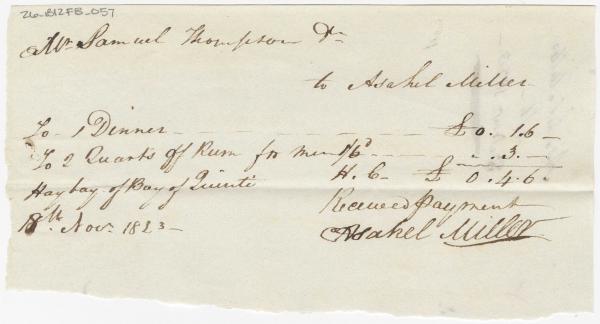 26-B12FB-057
Mr Samuel Thompson Dr
to Asahel Miller
To 1 Dinner - - - - £ 0. 1.6 -
To 2 Quarts off Rum for men 1/6d - - . . 3. -
Haybay of Bay of Quinti H. C - £ 0. 4. 6 -
Received payment
18th Novr 1823 - Asahel Miller